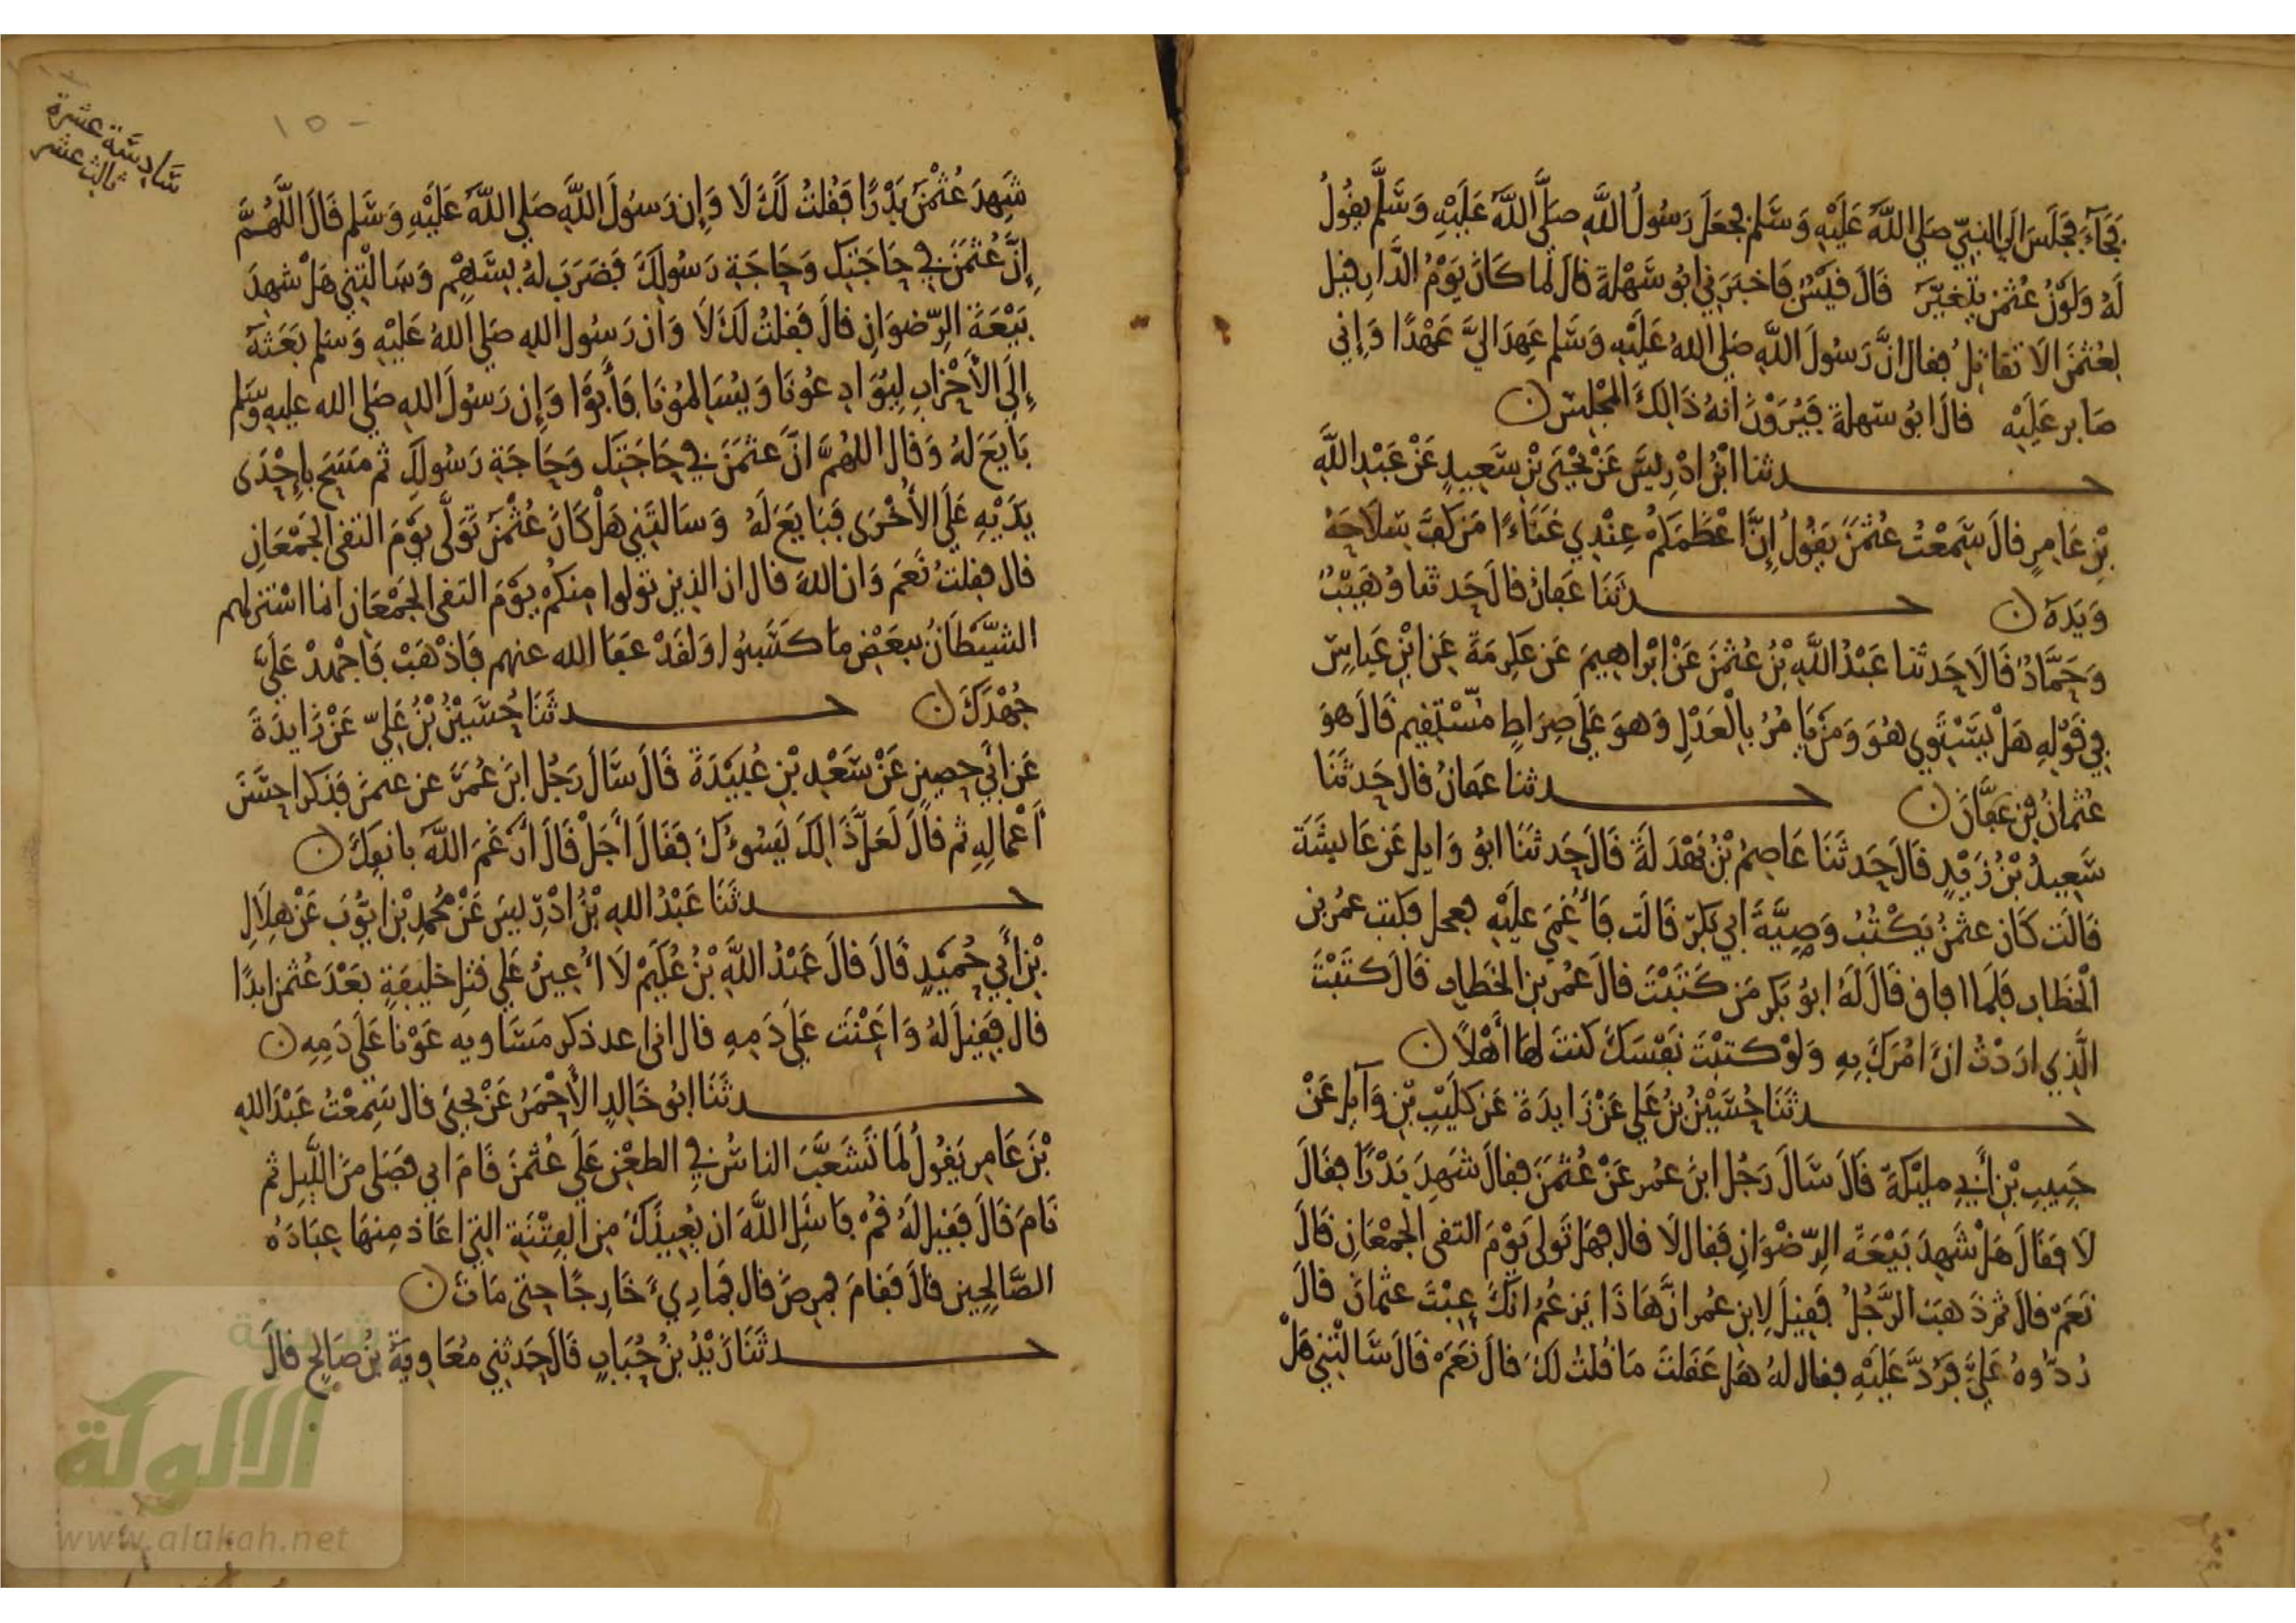 فَجَآءَ فجَلَسَ الي النبيّ صَلي اللَّه عَلَيْهِ وَسَّلم فجعَلَ رَسُولُ اللَّهِ صلَّى اللَّهُ عَلَيْهِ وَسَّلَّم يقُولُ
لَهُ وَلَوْنُ عُثمٰن يتَغيَّر قَالَ قيْسٌ فَاخبَرَني ابُو سَّهْلةَ قالَ لما كَانَ يَوْمُ الدَّارِ قيل
لعُثمٰنَ الَا تقاتِلُ فقال انَّ رَسُولَ اللَّهِ صَلي اللهُ عَلَيْهِ وَسَّلم عَهِدَ اليَّ عَهْدًا وَإني
صَابر عَلَيْه قالَ ابُو سّهلةَ فيُرَوْنَ انهُ ذَالِكَ المجْلِسّ
حـدثنا ابْنُ ادْرِيسَّ عَنْ يحْيَى بْنِ سَّعِيدٍ عَنْ عَبْدِ اللَّهِ
بْنِ عَامِرٍ قالَ سَّمِعْتُ عُثمٰنَ يَقُولُ إِنَّ اعْظَمَكمْ عِنْدِي غَنَاءً مَن كفَّ سّلاحَهُ
وَيَدَهُ حـدثَنَا عَفانُ قالَ حَدثنا وُهَيْبٌ
وَحَمَّادٌ قَالَا حَدثنا عَبْدُ اللَّهِ بْنُ عُثمٰنَ عَنْ ابْراهِيمَ عَن عكرمَةَ عَن ابْنِ عَباسٍّ
في قَوْلِهِ هَلْ يسَّتَوِي هُوَ وَمَن يَامُرُ بالْعَدْلِ وَهوَ عَلَى صِرَاطٍ مُسّتَقِيم قَالَ هوَ
عُثمانُ بْن عَفَّانَ حـدثنا عَفانُ قالَ حَدثَنَا
سَّعِيدُ بْنُ زَيْدٍ قَالَ حَدثَنَا عَاصِمُ بْنُ بَهْدَلَةَ قَالَ حَدثَنَا ابُو وَايل عَن عَايشَّةَ
قَالَت كَانَ عثمٰنُ يَكْتُبُ وَصِيَّةَ ابي بَكرٍ قَالَت فَأُغمَيَ عَلَيْهِ فعجل فكتب عمُر بن
الْخطَاب فلَما افاق قَالَ لَهُ ابُو بَكر مَن كَتَبْتَ قالَ عمُر بن الخطاب قَالَ كتَبْتَ
الَّذِي ارَدْتُ انَ امُرَكَ بِهِ وَلَوْ كتَبْتَ نفْسَّكَ كنتَ لها أَهْلًا
حـدثَنَا حُسَّيْنُ بْنُ عَلي عَنْ زَايدَةَ عَن كلَيْبِ بْنِ وَآيل عَنْ
حَبِيبِ بْنِ أَبِي مليْكَةَ قَالَ سّالَ رَجُل ابنَ عمُر عَنْ عُثمٰنَ فقالَ شهِدَ بَدْرًا فقالَ
لَا فقَالَ هَلْ شَهِدَ بَيْعَةَ الرّضْوَانِ فقَال لَا قال فهَل تَولى يَوْمَ التقى الجمْعَانِ قالَ
نَعَمْ قالَ ثم ذَهبَ الرَّجُلُ فقيلَ لابنِ عمُر انَّ هَاذَا يَزعُم انكَ عِبْتَ عثمانَ قالَ
رُدُّوهُ عَليَّ فَرُدَّ عَلَيْهِ فقال لهُ هَل عَقلتَ مَا قُلتُ لَكَ قالَ نَعَمْ قَالَ سَّالْتَنِي هَلْ
سّادسّة عشرة
ثالث عشر
١٥
شَهِدَ عُثْمٰنُ بَدْرًا فقُلتُ لَكَ لَا وَإِن رَسُولَ اللَّهِ صَلي اللَّهُ عَلَيْهِ وَسَّلم قَالَ اللَّهُمَّ
إِنَّ عُثمٰنَ في حَاجَتِكَ وَحَاجَةِ رَسُولِكَ فضَرَبَ لهُ بسَّهْمٍ وَسَالتَني هَلْ شهِدَ
بَيْعَةَ الرّضوَانِ قالَ فقلتُ لَكَ لَا وَان رَسُول اللهِ صَلي اللهُ عَلَيْهِ وَسَلم بَعَثَهُ
إِلَى الأَحْزَابِ لِيُوَادِعُونَا وَيُسَالِمُونَا فَأَبَوْا وَإِن رَسُولَ اللهِ صَلي الله عليهِ وَسّلم
بَايَعَ لهُ وَقال اللهُمَّ انَّ عثمٰنَ في حَاجَتِكَ وَحَاجَةِ رَسُولِكَ ثم مَسَحَ بإِحْدَى
يَدَيْهِ عَلَى الأخْرَى فبَايَعَ لَهُ وَسَالتَني هَلْ كَانَ عُثْمٰنَ تَوَلَّى يَوْمَ التقى الجَمْعَانِ
قال فقلتُ نَعَم وَان اللهَ قال ان الذِين تولوا مِنكُمْ يَوْمَ التقى الجَمْعَانِ انما اسْتزلهم
الشيْطَانُ ببَعْضِ مَا كسَبُوا وَلقَدْ عَفَا الله عنهم فَاذْهَبْ فَاجْهدْ عَليَّ
جُهْدَكَ حـدثَنَا حُسَّيْنُ بْنُ عَليّ عَنْ زَايدَةَ
عَن أَبي حصِين عَنْ سَّعْدِ بْنِ عُبَيْدَةَ قَالَ سَّالَ رَجُل ابنَ عُمَرَ عن عثمٰنَ فذكر احسَّنَ
أعْمالِهِ ثم قالَ لَعَلَّ ذَالِكَ يَسُوءُكَ فقَالَ أَجَلْ قَالَ أَرْغَمَ اللَّهُ بانفِكَ
حـدثَنَا عَبْدُ اللهِ بْنُ ادْرِيسَ عَنْ مُحمدِ بْنِ ايُّوبَ عَنْ هِلَالِ
بْنِ أَبِي حُمَيْدٍ قَالَ قالَ عَبْدُ اللَّهِ بْنُ عُكيْم لَا أُعِينُ عَلي قتلِ خلِيفَةٍ بَعْدَ عُثمٰن ابدًا
قال فقيلَ لهُ وَاعَنْتَ عَلي دَمِهِ قال اني اعد ذكر مَسَاويه عَوْنًا عَلَى دَمِهِ
حـدثَنَا ابُو خَالِدٍ الأَحْمَرُ عَنْ يحيَى قال سَمِعْتُ عَبْدَ اللهِ
بْنَ عَامِر يَقُولُ لمَا تَشَعَّبَ الناسُ في الطعْنِ عَلَى عُثمٰنَ قَامَ ابي فصَلى منَ اللَّيلِ ثم
نَامَ قَالَ فقيلَ لَهُ قُمْ فَاسْئَلِ اللَّهَ ان يُعِيذَكَ مِن الفِتْنَةِ التي اعَاذ مِنهَا عِبَادَهُ
الصَّالحِين قالَ فقَامَ فمرضَ قال فمَا رِيءَ خَارِجًا حتى مَاتَ
حـدثَنَا زَيْدُ بْنُ حُبَابٍ قَالَ حَدثنِي مُعَاوِيَةُ بْنُ صَالحٍ قالَ
شبكة
الألوكة
www.alukah.net